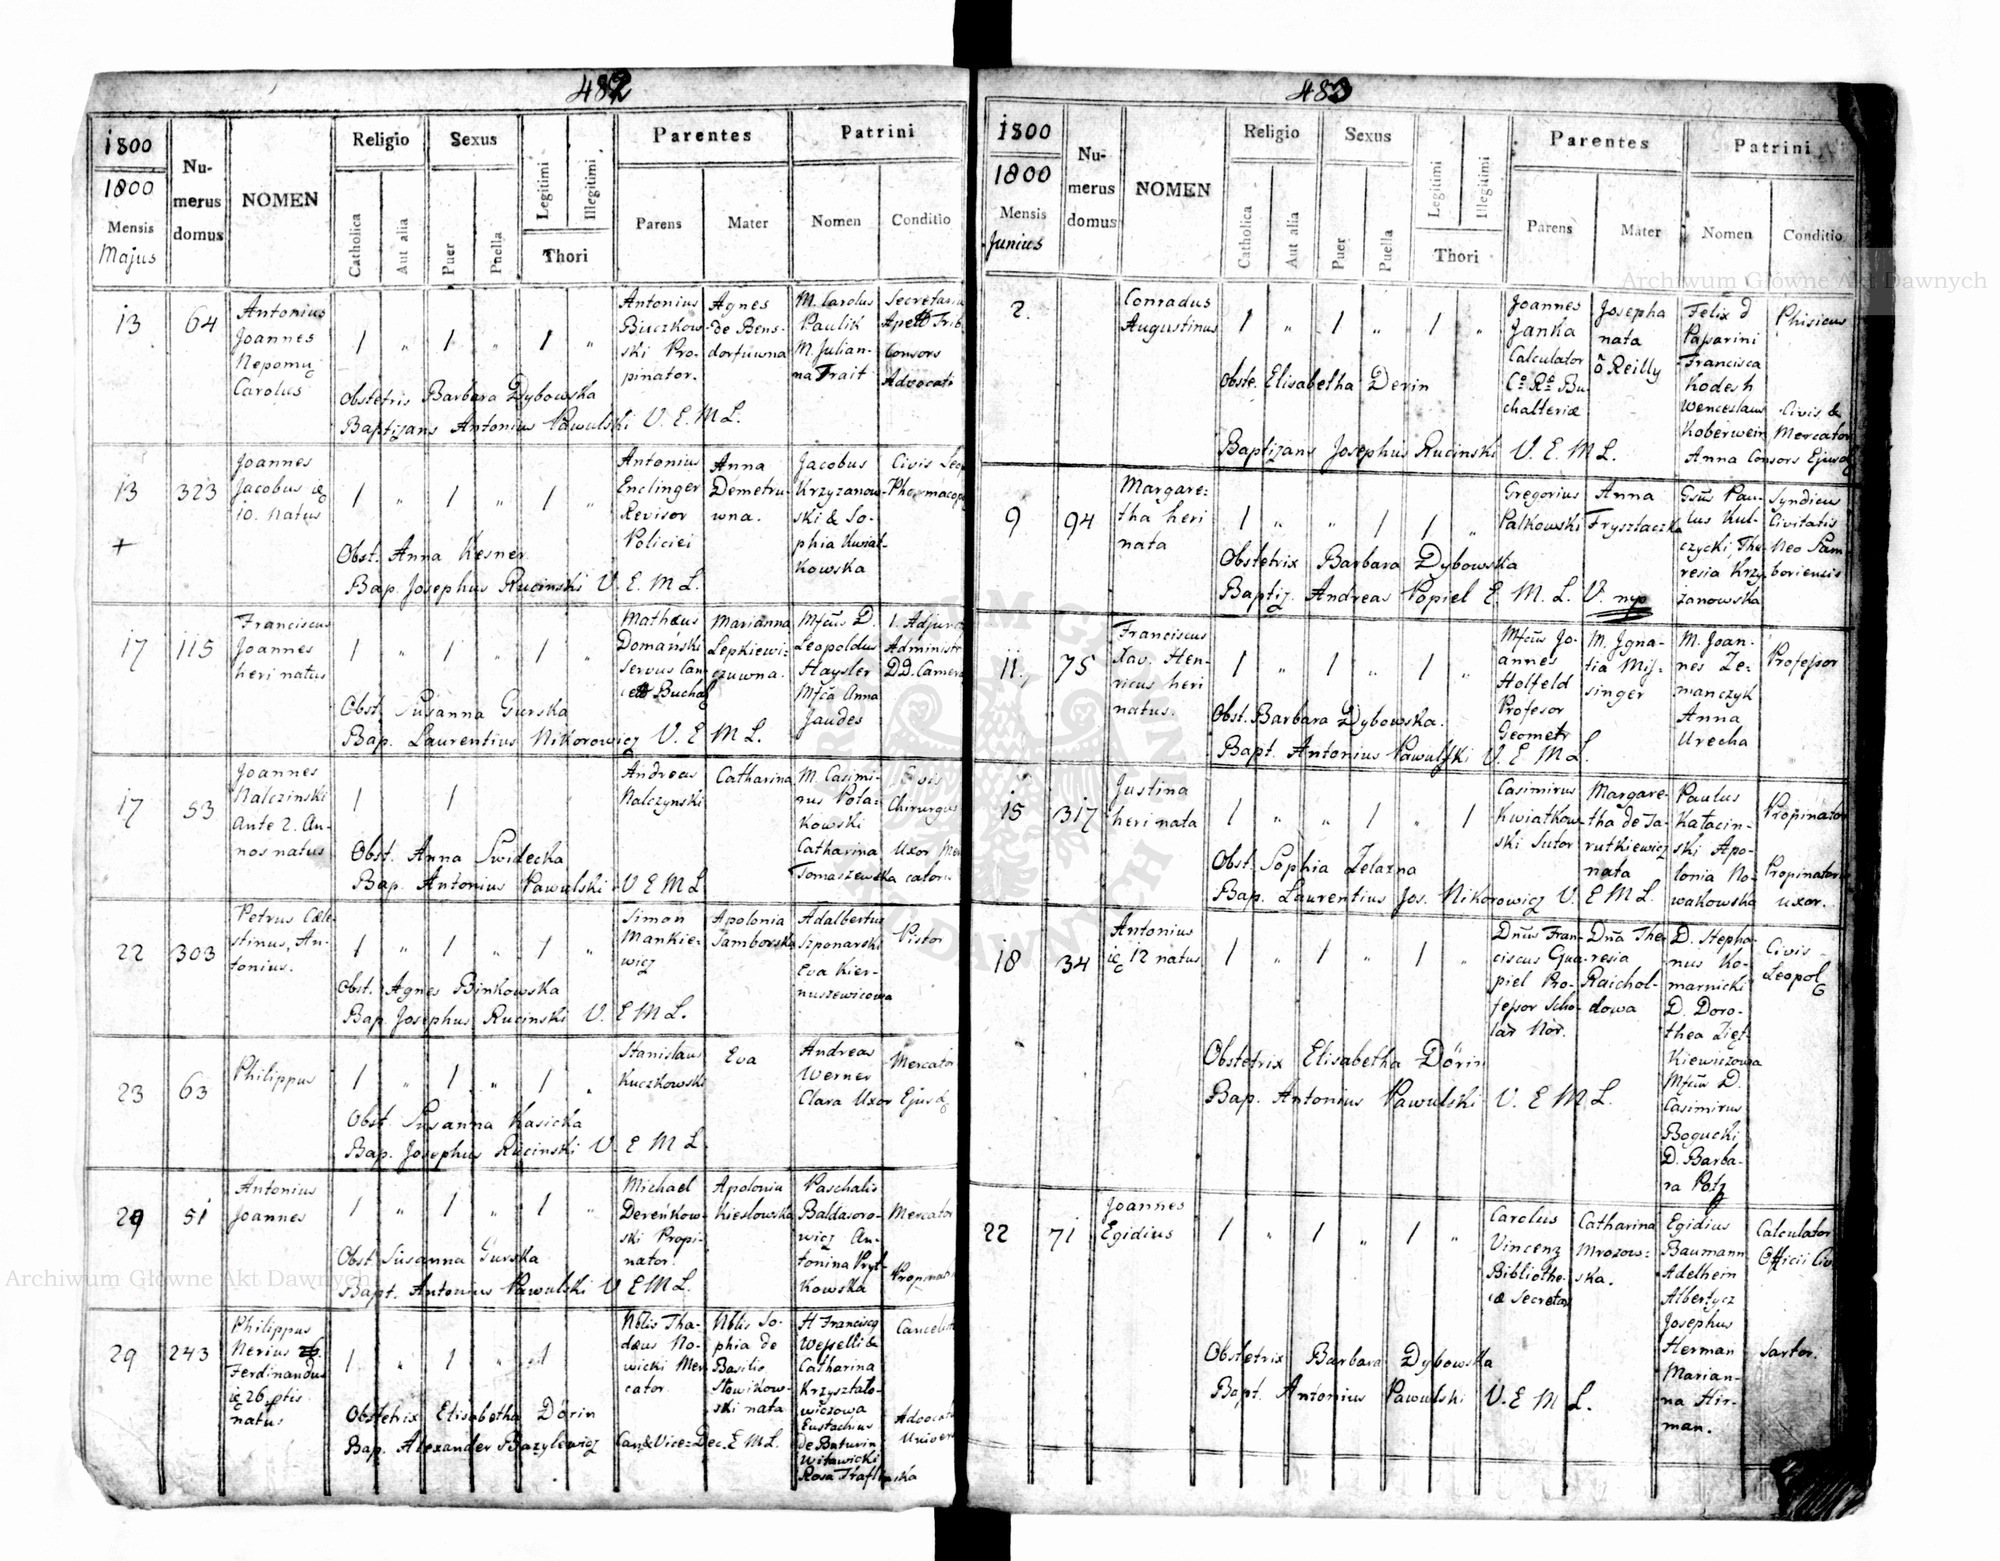 482
1800
1800
Mensis
Majus
Numerus
domus
NOMEN
Religio
Catholica
Aut alia
Sexus
Puer
Puella
Legitimi
Illegitimi
Thori
Parentes
Parens
Mater
Patrini
Nomen
Conditio
13
64
Antonius
Joannes
Carolus
Antonius
Buczkow-
ski Pro-
pinator.
Agnes
de Bens-
dorfuwna
M. Carolus
Paulik
M. Julian-
na Trait
Consors
Advocati
Obstetrix Barbara Dybowska
Baptizans Antonius Pawulski V. E. M L.
13
323
+
Joannes
Jacobus
10. natus
Antonius
Enclinger
Revisor
Policiei
Anna
Demetru-
wna.
Jacobus
Krzyzanow-
ski & So-
phia Kwiat-
kowska
Civis
Obst. Anna Kesner
Bap. Josephus Rucinski V. E. M L.
17
115
Franciscus
Joannes
heri natus
Mathæus
Domański
Servus
Marianna
Lepkiewi-
czuwna.
D.
Leopoldus
Haysler
Anna
Jaudes
1. Adjun
Administr
DD. Camera
Obst. Susanna Gurska
Bap. Laurentius Nikorowicz V. E M L.
17
53
Joannes
Nalczinski
Ante 2. An-
nos natus
Andreas
Nalczynski
Catharina
M. Casimi-
rus Pota-
kowski
Catharina
Tomaszewska
Civis
Chirurgus
Uxor Mer
catoris
Obst. Anna Swidecka
Bap. Antonius Pawulski V E M L
22
303
Petrus Cæle-
stinus, An-
tonius.
Simon
Mankie-
wicz
Apolonia
Samborska
Adalbertus
Szponarski
Eva Kier-
nuszewicowa
Pistor
Obst. Agnes Binkowska
Bap. Josephus Rucinski V. E M L.
23
63
Philippus
Stanislaus
Kuczkowski
Eva
Andreas
Werner
Clara Uxor
Mercator
Ejusd
Obst. Susanna Kasicka
Bap. Josephus Rucinski V. E M L
29
51
Antonius
Joannes
Michael
Dereńkow-
ski Propi-
nator.
Apolonia
Kieslowska
Paschalis
Baldasoro-
wicz An-
tonina Pryt-
kowska
Mercator
Obst. Susanna Gurska
Bapt. Antonius Pawulski V E M L.
29
243
Philippus
Nerius
Ferdinandus
natus
Nblis Tha-
dæus No-
wicki Mer
cator
Nblis So-
phia de
Basilio
Stowikow-
ski nata
Wesselli &
Catharina
Krzysztafo-
wiczowa
Eustachius
de Baturin
Witawicki
Rosa
Obstetrix Elisabetha Dörin
Bap. Alexander Bazylewicz Can & Vice-Dec. E M L.
483
1800
1800
Mensis
Junius
Numerus
domus
NOMEN
Religio
Catholica
Aut alia
Sexus
Puer
Puella
Legitimi
Illegitimi
Thori
Parentes
Parens
Mater
Patrini
Nomen
Conditio
2.
Conradus
Augustinus
Joannes
Janka
Calculator
Bu-
chalteriæ
Josepha
nata
õ Reilly
Felix d
Paparini
Francisca
Kodesh
Wenceslaus
Koberwein
Anna Consors Ejusd
Phisicus
Civis &
Mercator
Obste. Elisabetha Derin
Baptizans Josephus Rucinski V. E. M L.
9
94
Margare-
tha heri
nata
Gregorius
Palkowski
Anna
Frysztaczka
Pau-
lus Kul-
czycki, The-
resia Krzy-
zanowska
Syndicus
Civitatis
Neo Sam-
boriensis
Obstetrix Barbara Dybowska
Baptiz. Andreas Popiel E. M. L. V. mp
11.
75
Franciscus
Xav. Hen-
ricus heri
natus.
Jo-
annes
Holfeld
Profesor
Geometr
M. Igna-
tia Mis-
singer
M. Joan-
nes Ze-
manczyk
Anna
Urecha
Professor
Obst. Barbara Dybowska.
Bapt. Antonius Pawulski V. E M L.
15
317
Justina
heri nata
Casimirus
Kwiatkow-
ski Sutor
Margare-
tha de Ja-
rutkiewicz
nata
Paulus
Katacin-
ski Apo-
lonia No-
wakowska
Propinator
Propinatoris
uxor.
Obst. Sophia Zelazna
Bap. Laurentius Jos. Nikorowicz V. E M L.
18
34
Antonius
12 natus
Dnus Fran-
ciscus Gua-
piel Pro-
fessor Scho-
lar Nor.
Dna The-
resia
Raichol-
dowa
D. Stepha-
nus Ko-
marnicki
D. Doro-
thea Zięt-
kiewiczowa
D.
Casimirus
Bogucki
D. Barba-
ra Potz
Civis
Leopol
Obstetrix Elisabetha Dörin
Bap. Antonius Pawulski V. E M L.
22
71
Joannes
Egidius
Carolus
Vincenz
Bibliothe-
cæ Secretar
Catharina
Mrozow-
ska.
Egidius
Baumann
Adelhein
Albertycz
Josephus
Herman
Marian-
na Hir-
man.
Calculator
Officii Civ
Sartor.
Obstetrix Barbara Dybowska
Bapt. Antonius Pawulski V. E M L.
Archiwum Główne Akt Dawnych
Archiwum Główne Akt Dawnych